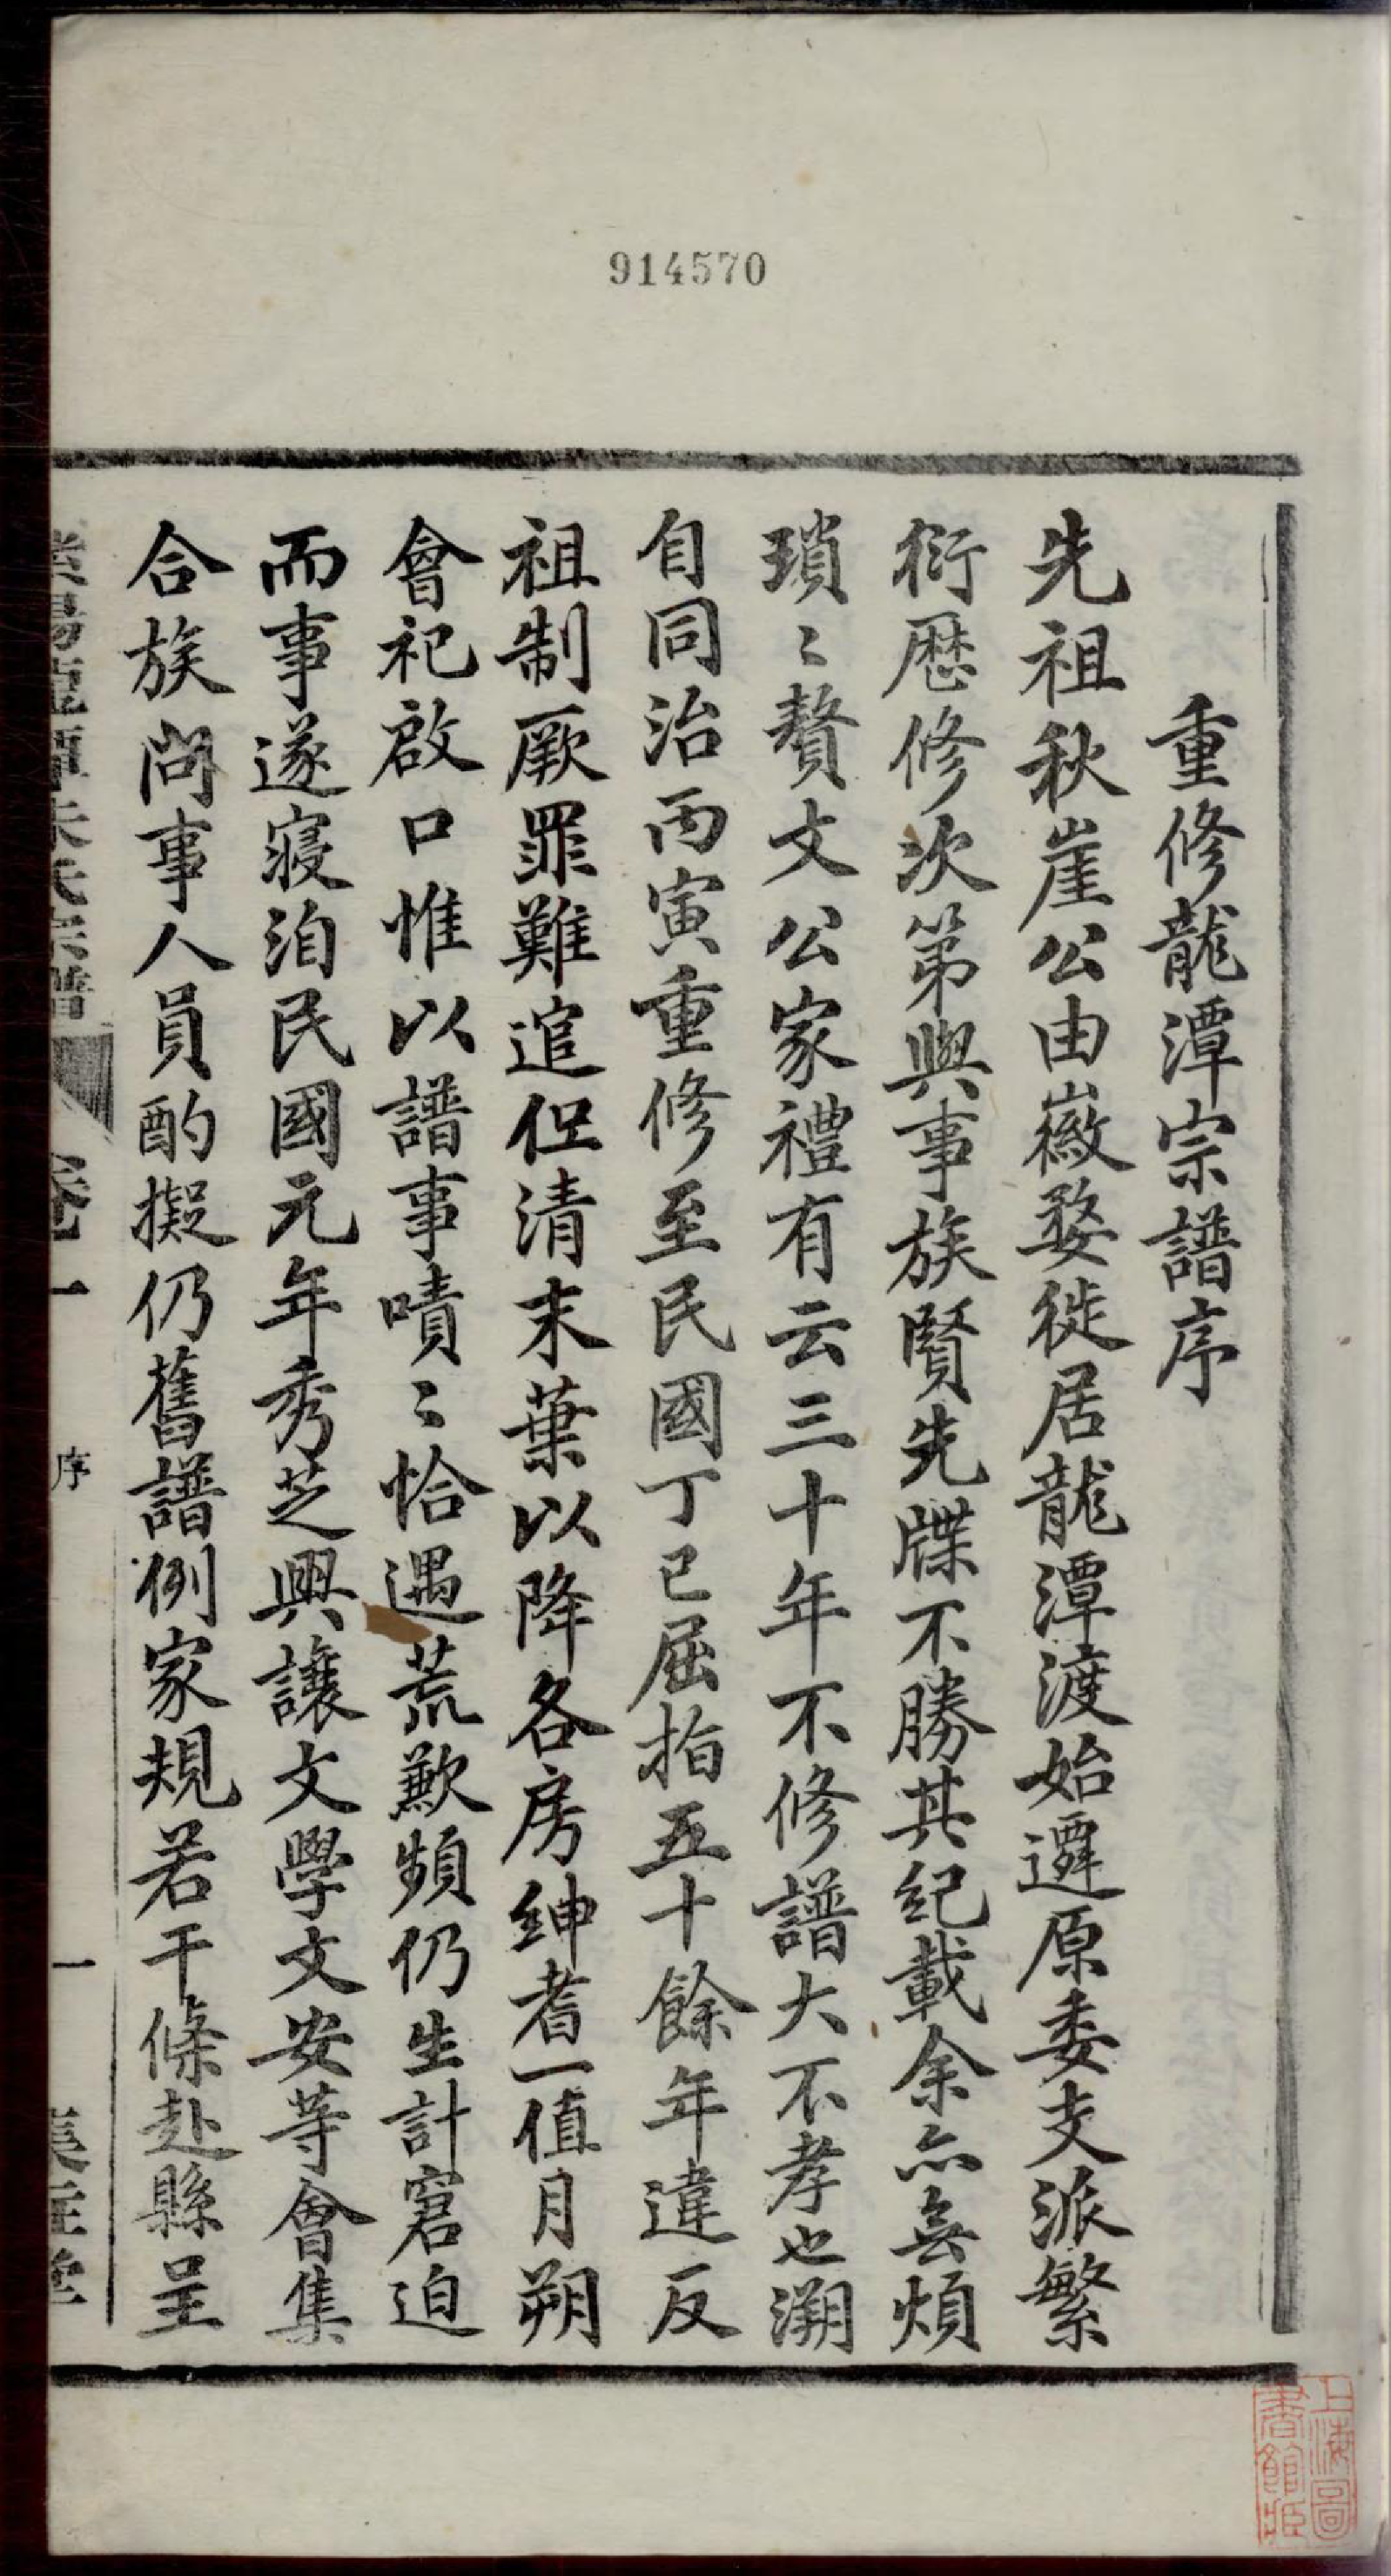 914570
重修龍潭宗譜序
先祖秋崖公由徽婺徙居龍潭渡始遷原委支派繁
衍歷修次第與事族賢先牒不勝其紀載余亦無煩
瑣〻贅文公家禮有云三十年不修譜大不孝也溯
自同治丙寅重修至民國丁巳屈指五十餘年違反
祖制厥罪難逭但清末葉以降各房紳耆一值月朔
會祀啟口惟以譜事嘖〻恰遇荒歉頻仍生計窘迫
而事遂寢洎民國元年秀芝興讓文學文安等會集
合族尚事人員酌擬仍舊譜例家規若干條赴縣呈
龍潭朱氏宗譜
卷一
序
一
堂
上海圖
書館藏